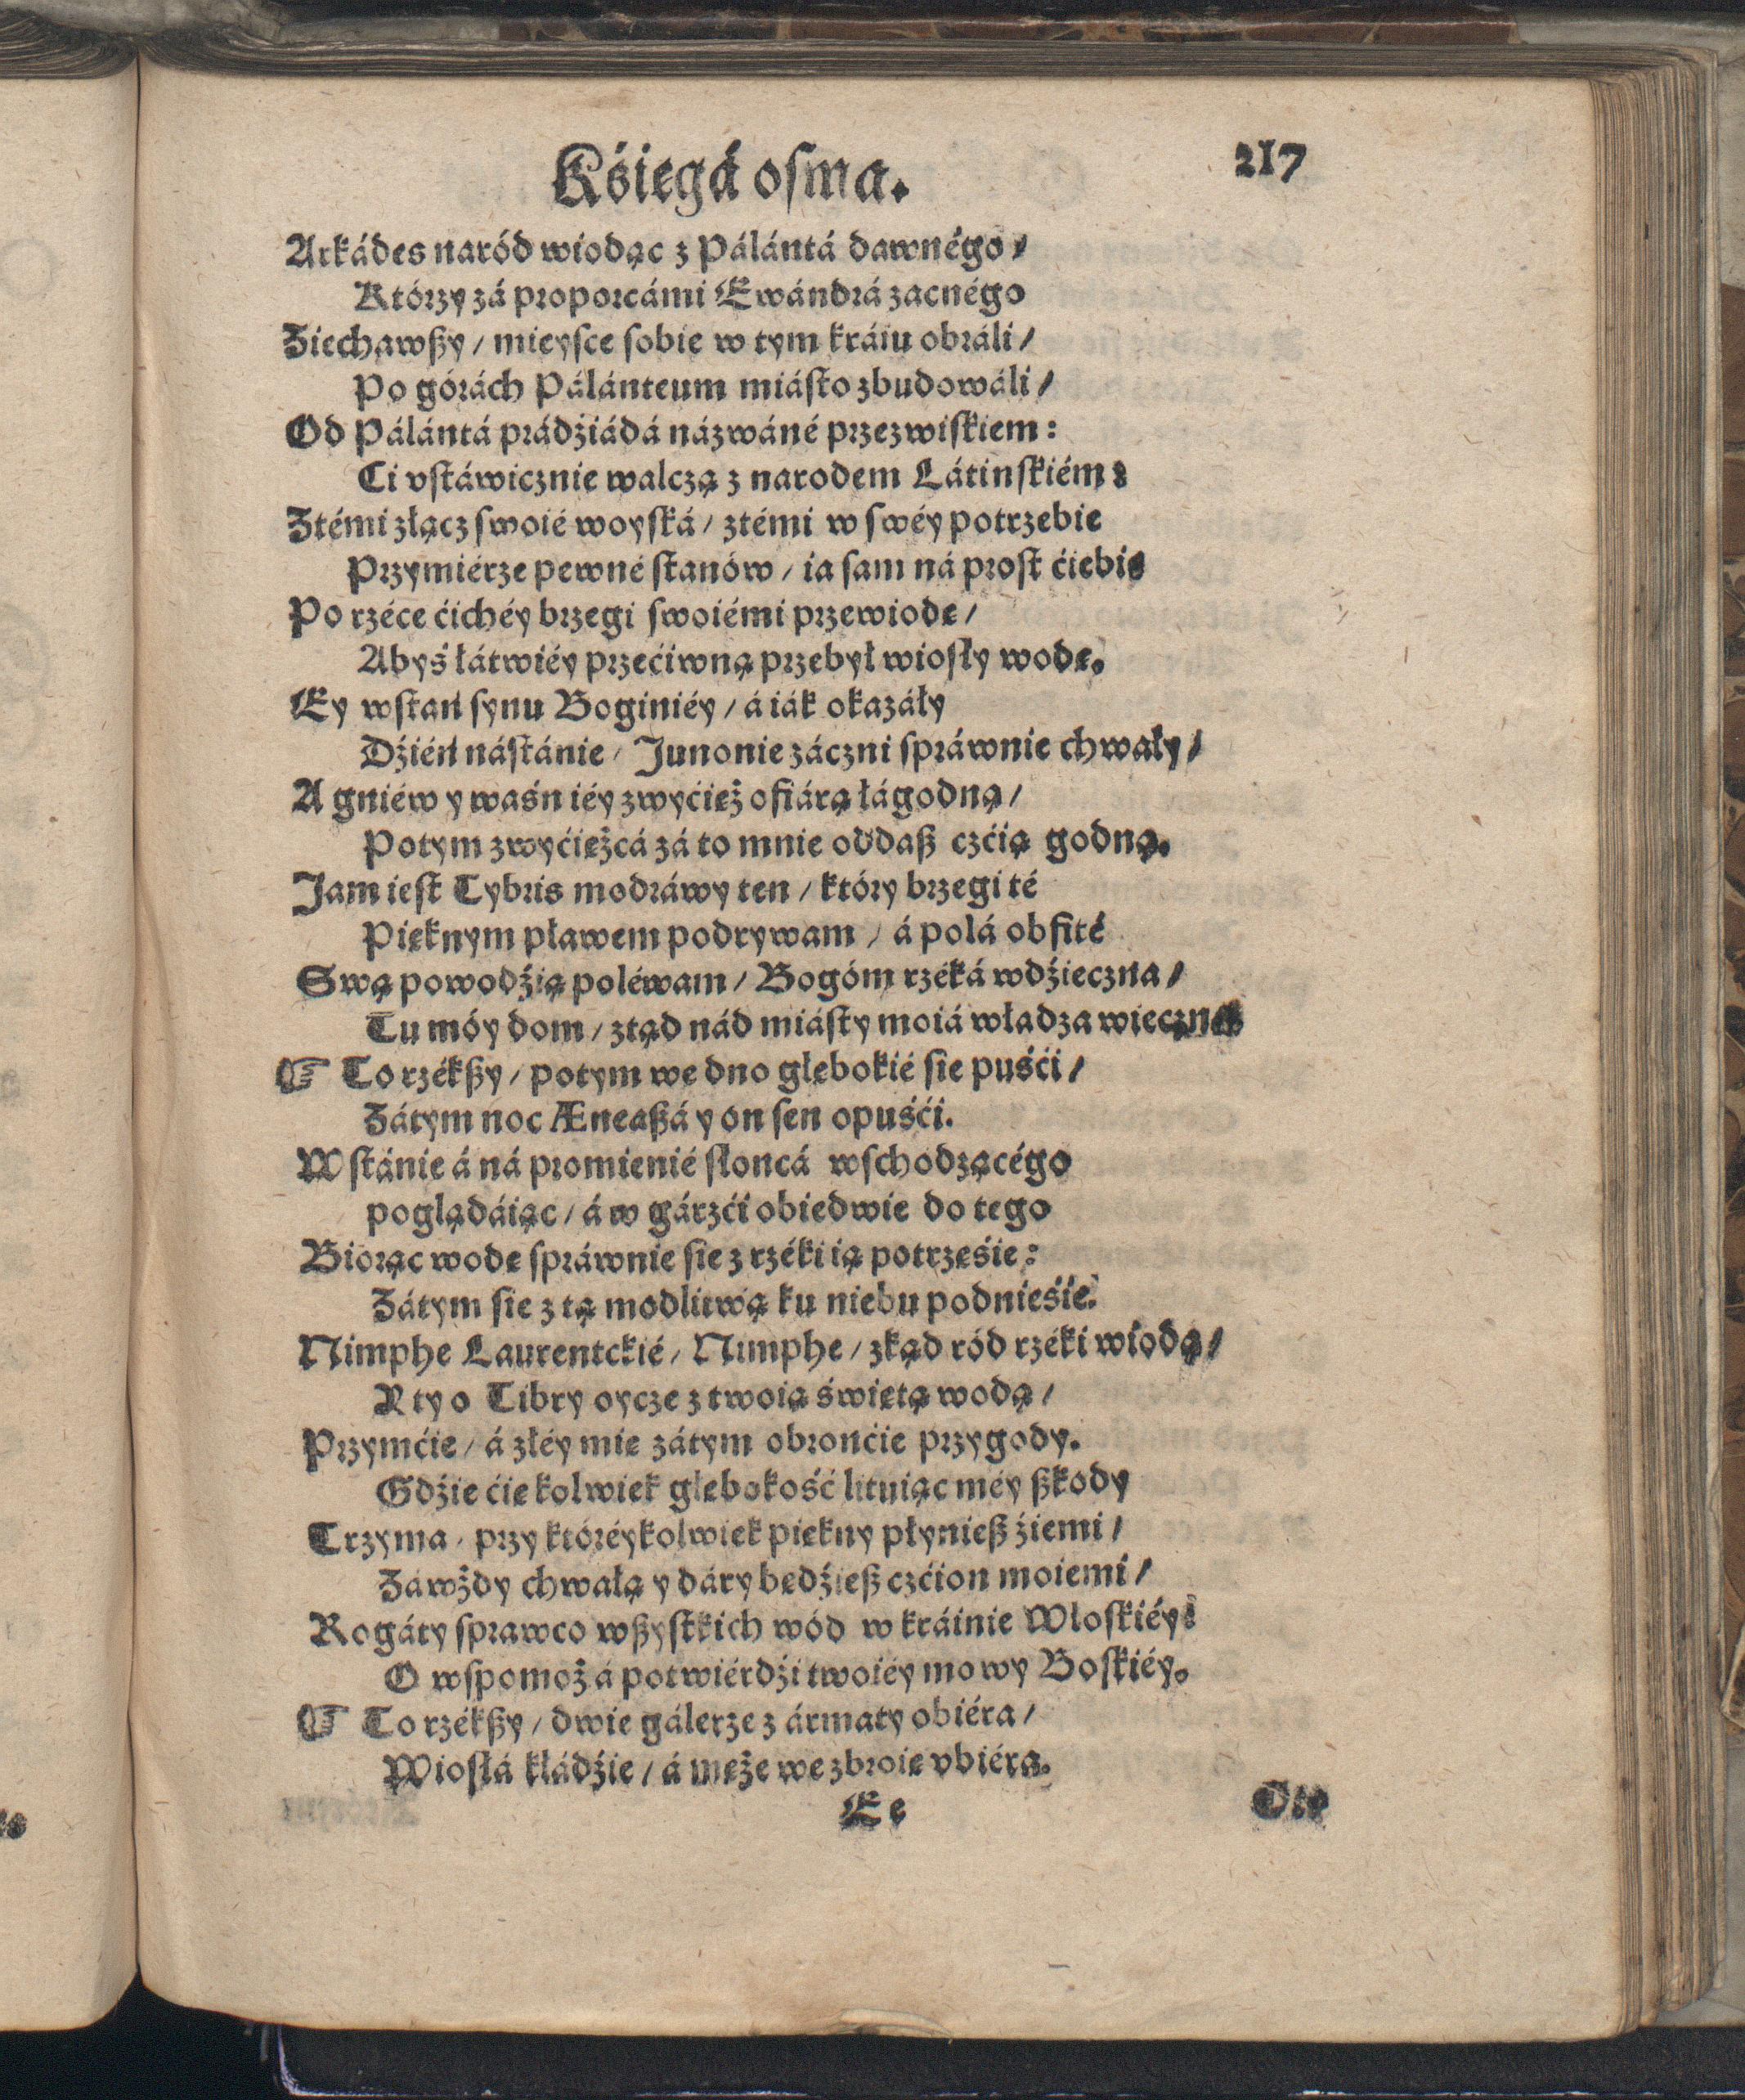 Kśięgá oſma.
217
Arkádes naród wiodąc z Pálántá dawnégo/
Którzy zá proporcámi Ewándrá zacnégo
Ziechawßy/ mieyſce ſobie w tym kráiu obráli/
Po górách Pálánteum miáſto zbudowáli/
Od Pálántá prádźiádá názwáné przezwiſkiem:
Ci vſtáwicznie walczą z narodem Látinſkiém:
Ztémi złącz ſwoié woyſká/ ztémi w ſwéy potrzebie
Przymiérze pewné ſtanów/ ia ſam ná proſt ćiebie
Po rzéce ćichéy brzegi ſwoiémi przewiodę/
Abyś łátwiéy przećiwną przebył wioſły wodę.
Ey wſtań ſynu Boginiéy/ á iák okazáły
Dźień náſtánie/ Junonie záczni ſpráwnie chwały/
A gniéw y waśń iéy zwyćięż ofiárą łágodną/
Potym zwyćiężcá zá to mnie oddaß czćią godną.
Jam ieſt Tybris modráwy ten/ który brzegi té
Pięknym pławem podrywam/ á polá obfité
Swą powodźią poléwam/ Bogóm rzéká wdźięczna/
Tu móy dom/ ztąd nád miáſty moiá władza wieczna.
☞ To rzékßy/ potym we dno głębokié ſie puśći/
Zátym noc Æneaßá y on ſen opuśći.
Wſtánie á ná promienié słońcá wſchodzącégo
poglądáiąc/ á w gárzśći obiedwie do tego
Biorąc wodę ſpráwnie ſie z rzéki ią potrzęśie:
Zátym ſie z tą modlitwą ku niebu podnieśie.
Nimphe Laurentckié/ Nimphe/ zkąd ród rzéki wiodą/
Y ty o Tibry oycze z twoią świętą wodą/
Przymćie/ á złéy mie zátym obrońćie przygody.
Gdźie ćię kolwiek głębokość lituiąc méy ßkody
Trzyma/ przy któréykolwiek piękny płynieß źiemi/
Záwżdy chwałą y dáry będźieß czćion moiemi/
Rogáty ſprawco wßyſtkich wód w kráinie Włoſkiéy:
O wſpomoż á potwiérdźi twoiéy mowy Boſkiéy.
☞ To rzékßy/ dwie gálerze z ármaty obiéra/
Wioſłá kłádźie/ á męże we zbroię vbiéra.
Ee